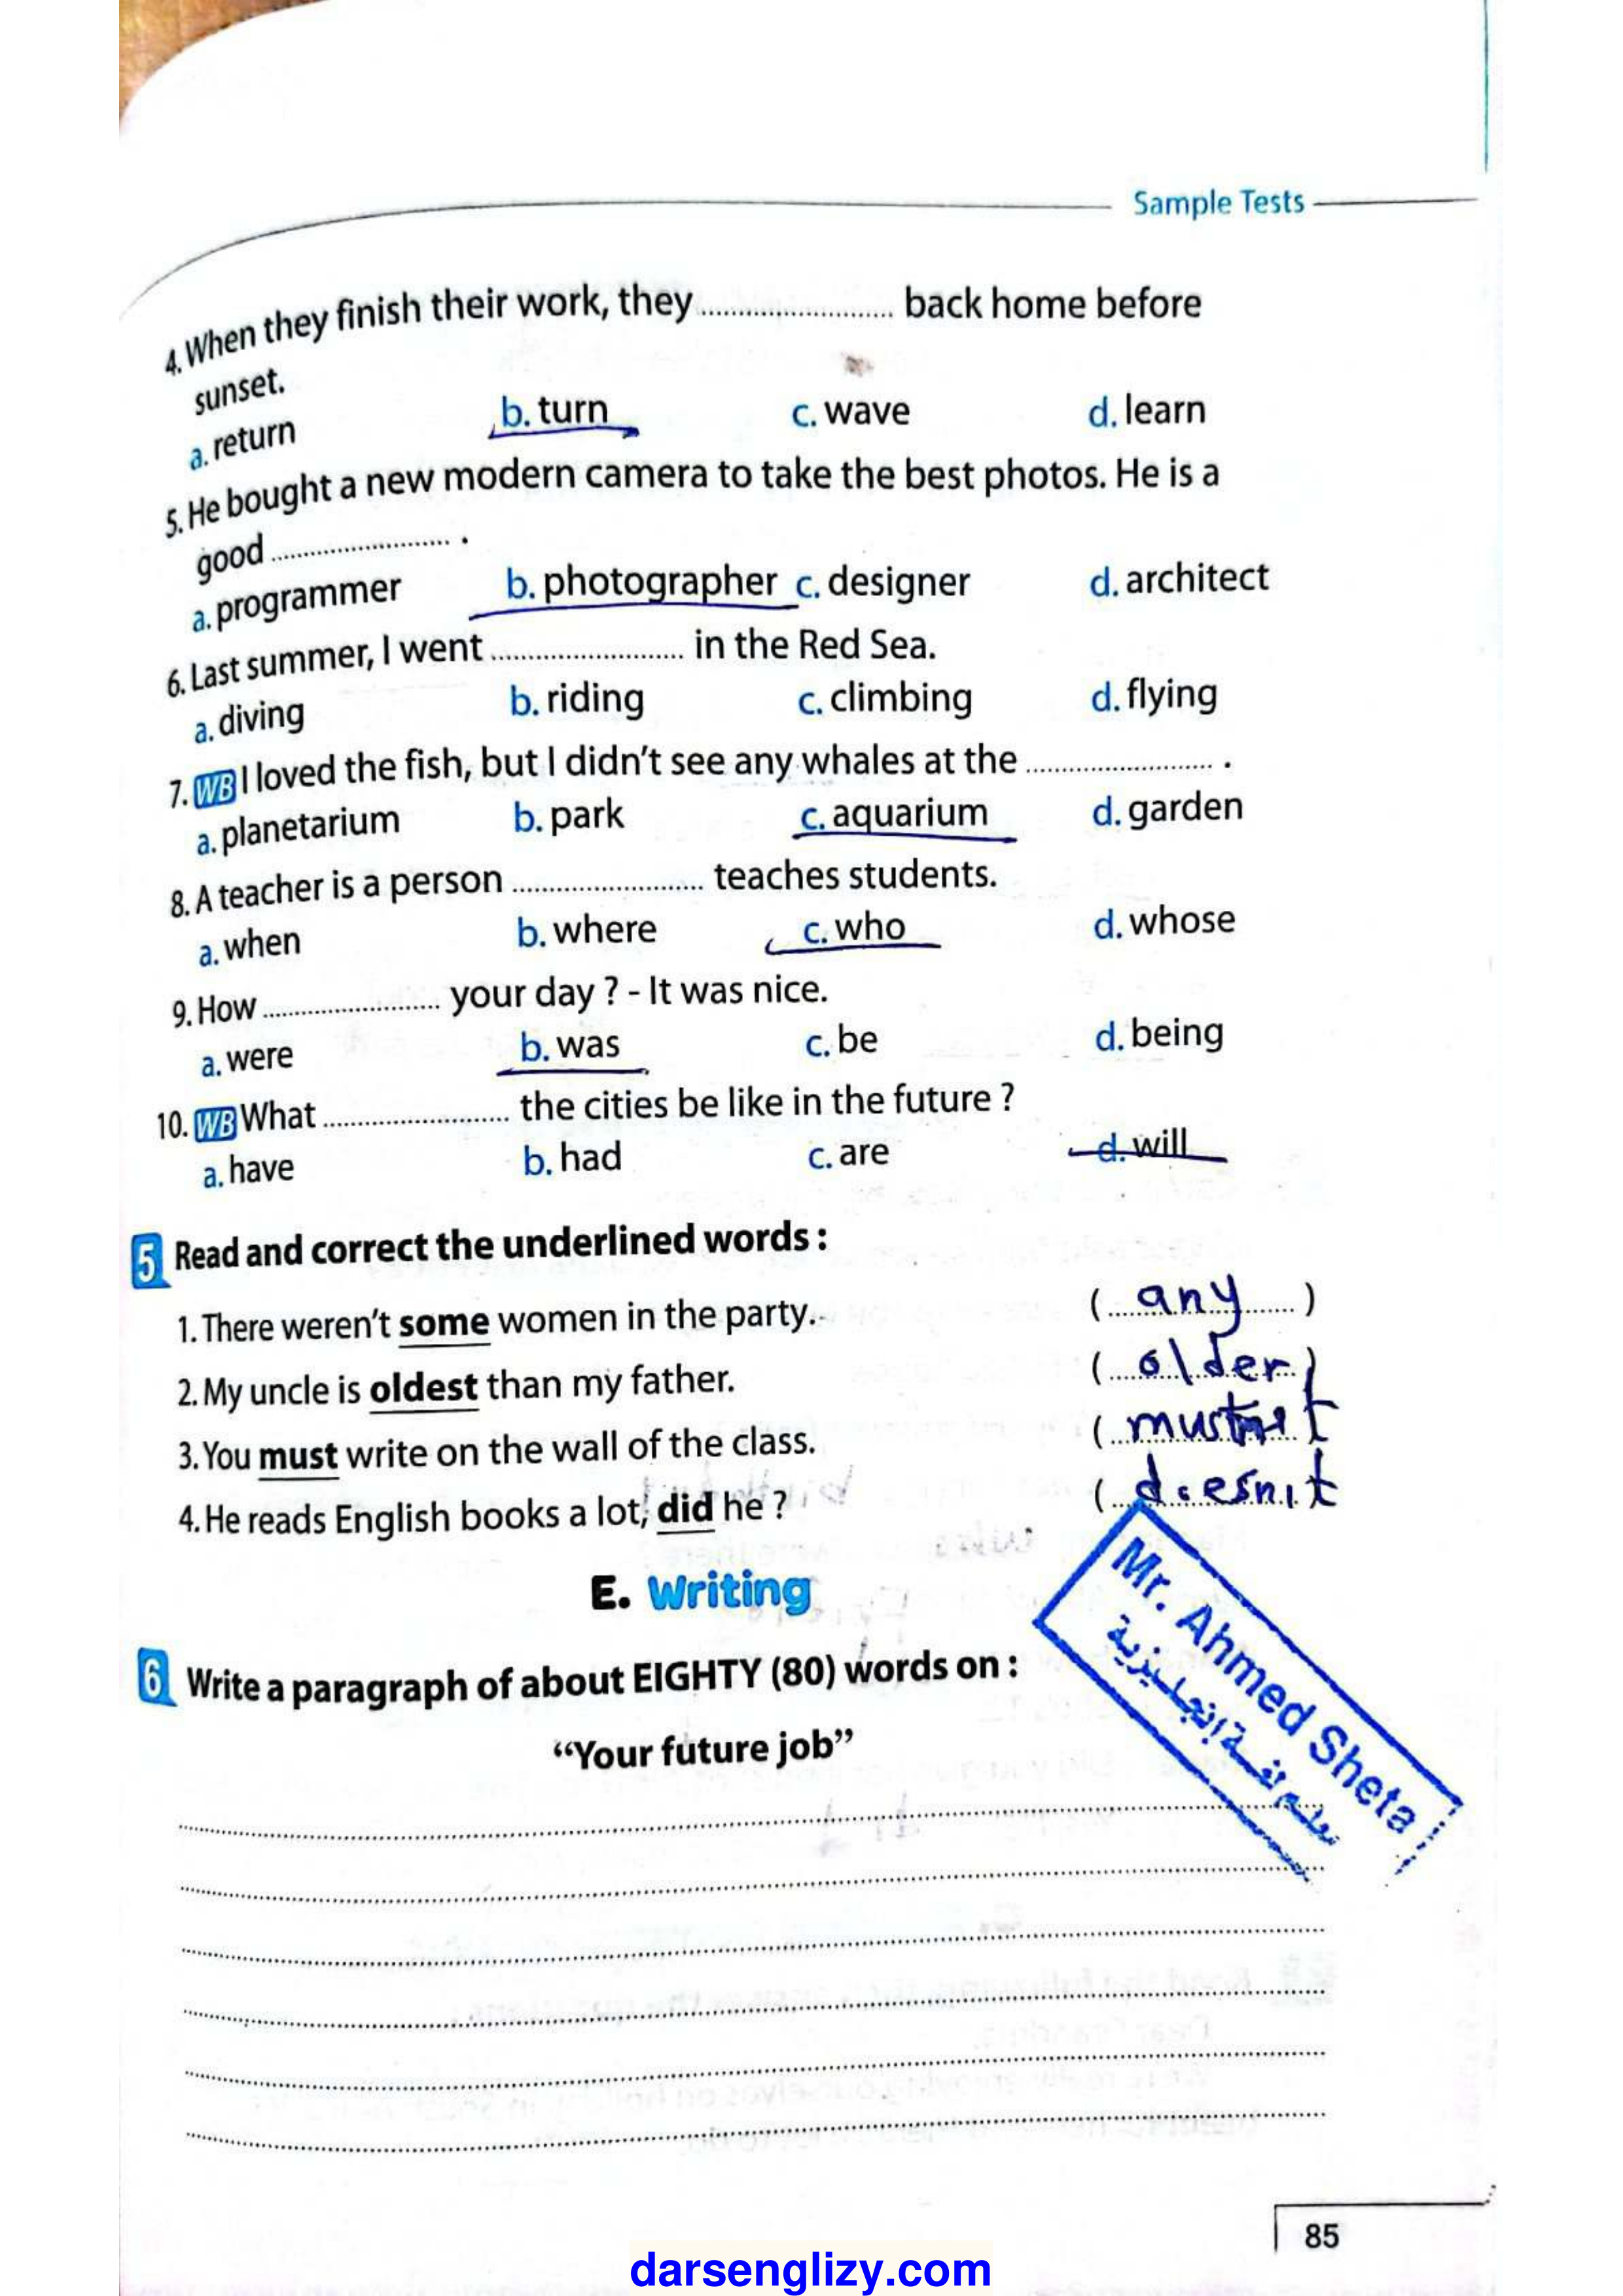 Sample Tests
4. When they finish their work, they ........................ back home before
sunset.
a. return b. turn c. wave d. learn
5. He bought a new modern camera to take the best photos. He is a
good ........................ .
a. programmer b. photographer c. designer d. architect
6. Last summer, I went ........................ in the Red Sea.
a. diving b. riding c. climbing d. flying
7. WB I loved the fish, but I didn't see any whales at the ........................ .
a. planetarium b. park c. aquarium d. garden
8. A teacher is a person ........................ teaches students.
a. when b. where c. who d. whose
9. How ........................ your day ? - It was nice.
a. were b. was c. be d. being
10. WB What ........................ the cities be like in the future ?
a. have b. had c. are d. will
5 Read and correct the underlined words :
1. There weren't some women in the party. ( any )
2. My uncle is oldest than my father. ( older )
3. You must write on the wall of the class. ( mustn't
4. He reads English books a lot, did he ? ( doesn't
E. Writing
6 Write a paragraph of about EIGHTY (80) words on :
"Your future job"
Mr. Ahmed Sheta
معلم لغة إنجليزية
85
darsenglizy.com